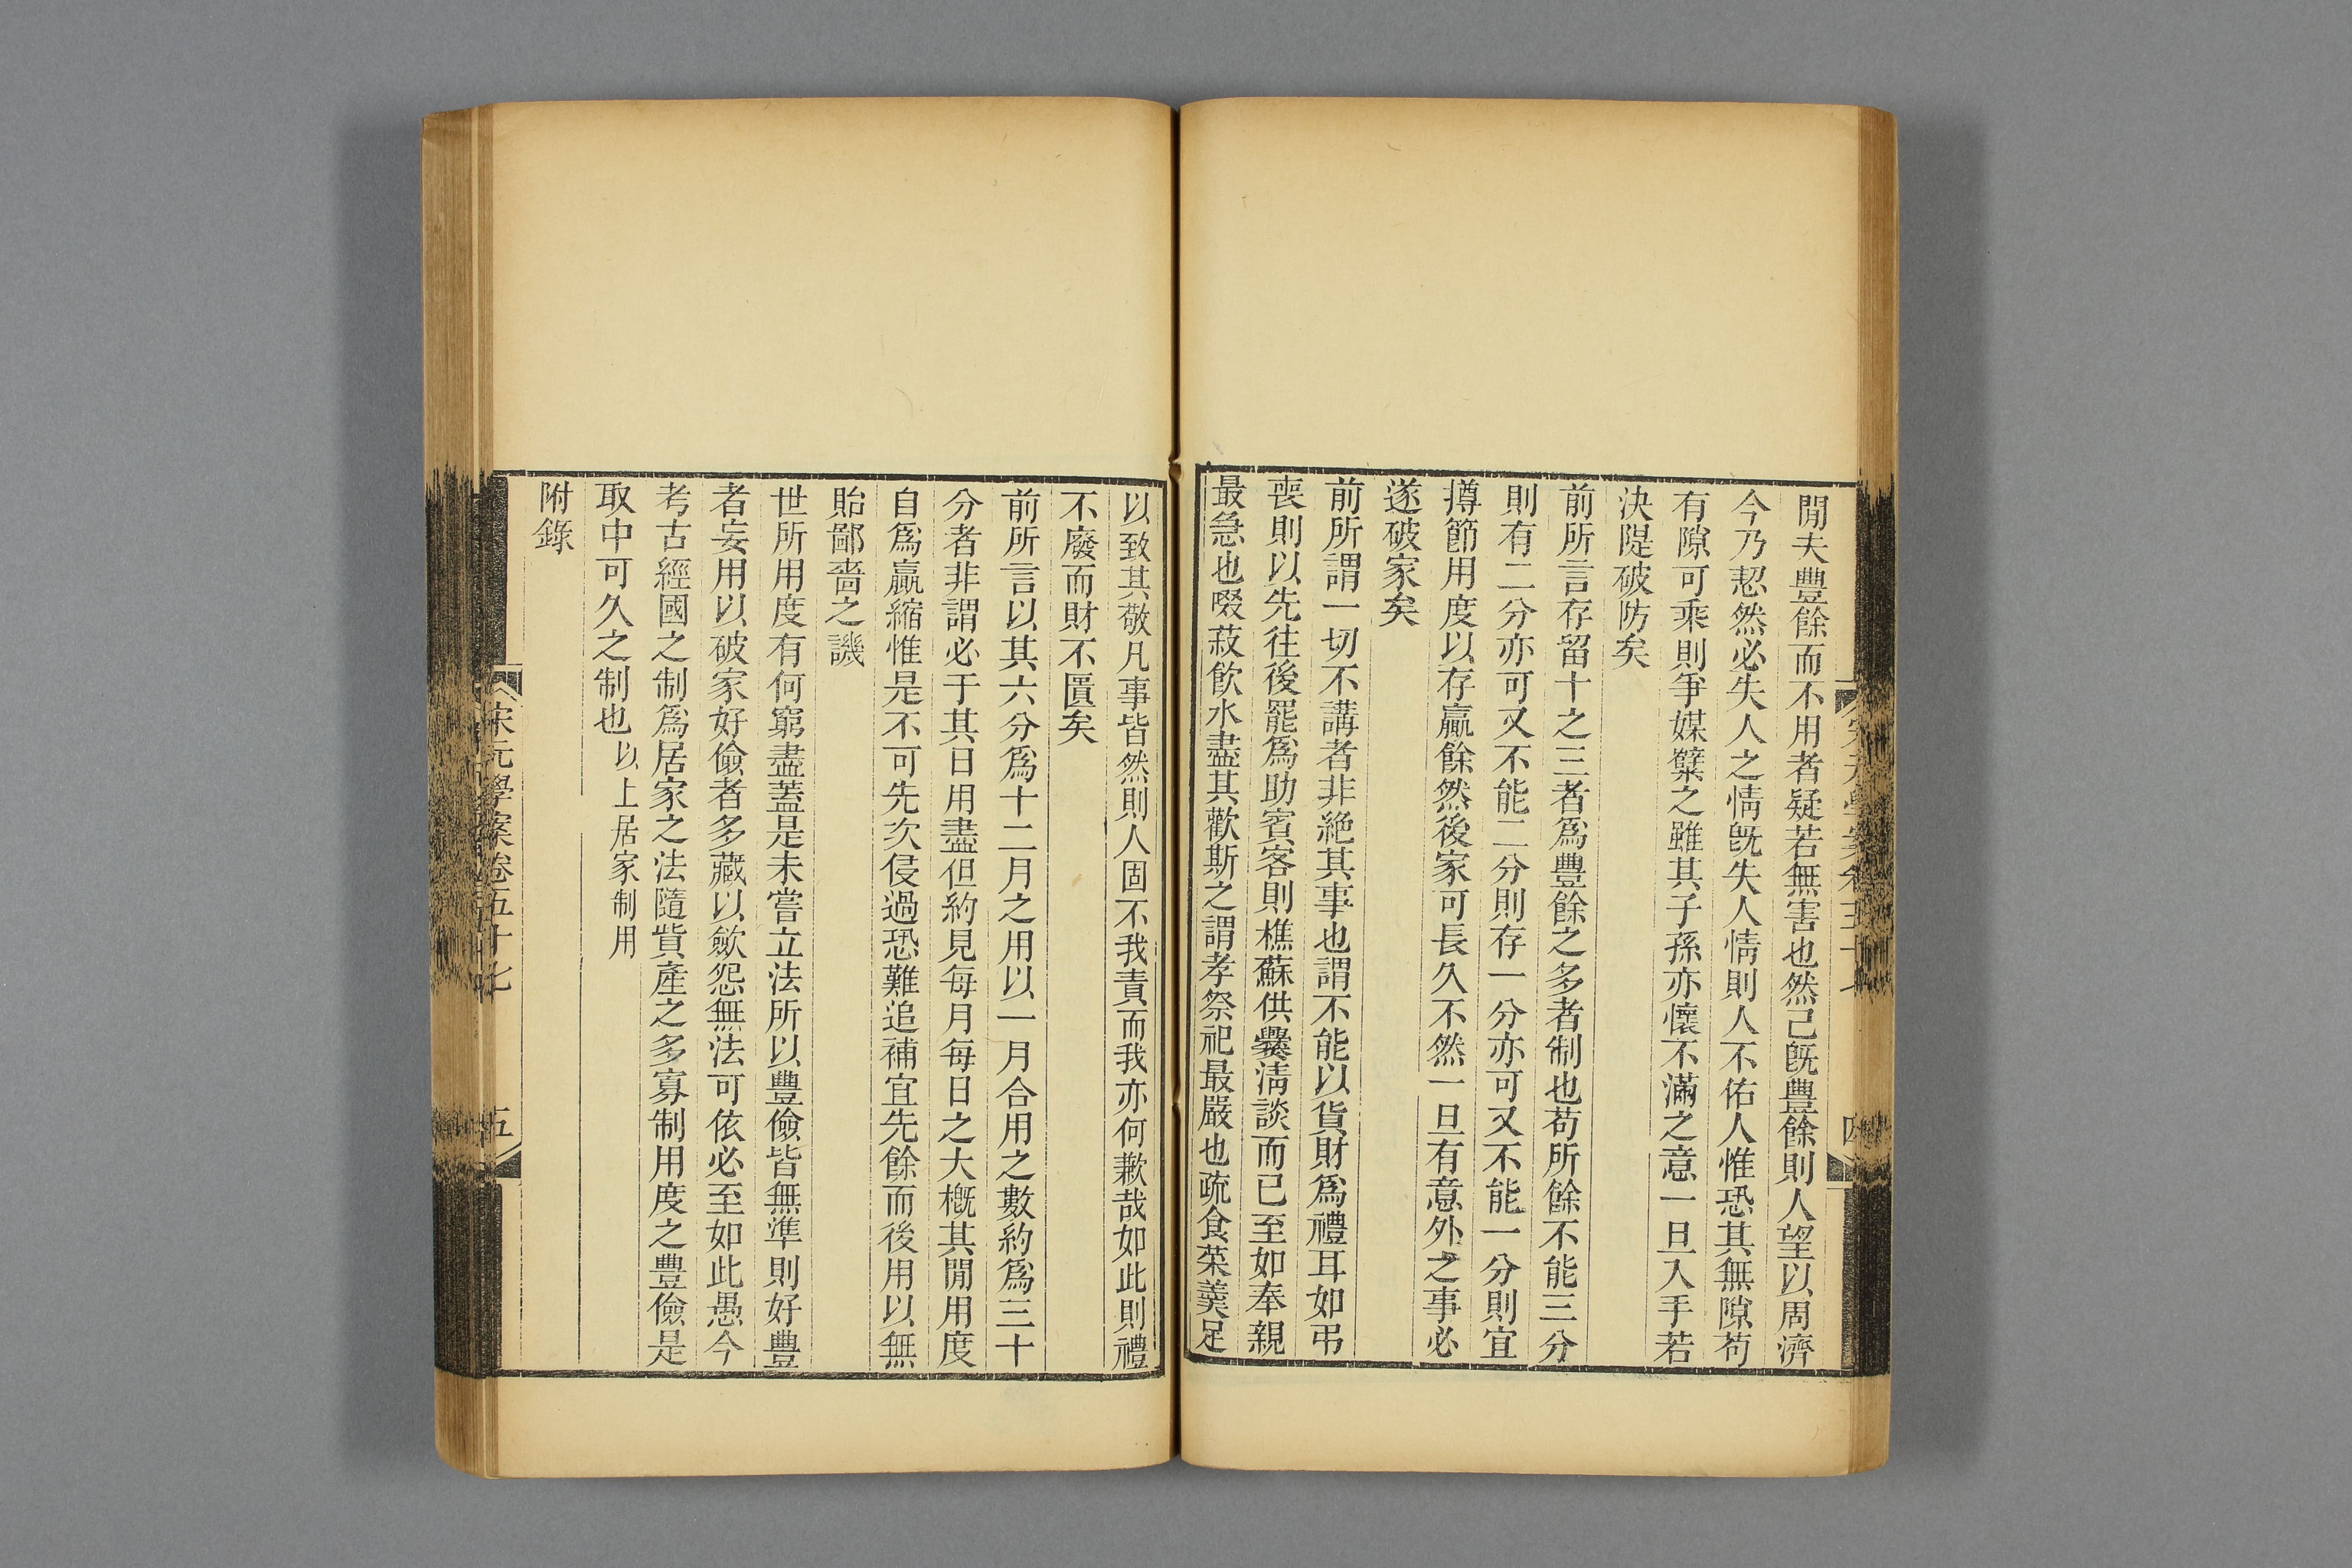 閒夫豐餘而不用者疑若無害也然己旣豐餘則人望以周濟
今乃恝然必失人之情旣失人情則人不佑人惟恐其無隙苟
有隙可乘則爭媒糱之雖其子孫亦懷不滿之意一旦入手若
決隄破防矣
前所言存留十之三者爲豐餘之多者制也苟所餘不能三分
則有二分亦可又不能二分則存一分亦可又不能一分則宜
撙節用度以存贏餘然後家可長久不然一旦有意外之事必
遂破家矣
前所謂一切不講者非絶其事也謂不能以貨財爲禮耳如弔
喪則以先往後罷爲助賓客則樵蘇供爨淸談而已至如奉親
最急也啜菽飮水盡其歡斯之謂孝祭祀最嚴也疏食菜羹足
以致其敬凡事皆然則人固不我責而我亦何歉哉如此則禮
不廢而財不匱矣
前所言以其六分爲十二月之用以一月合用之數約爲三十
分者非謂必于其日用盡但約見每月每日之大槪其閒用度
自爲贏縮惟是不可先次侵過恐難追補宜先餘而後用以無
貽鄙嗇之譏
世所用度有何窮盡蓋是未嘗立法所以豐儉皆無準則好豐
者妄用以破家好儉者多藏以歛怨無法可依必至如此愚今
考古經國之制爲居家之法隨貲產之多寡制用度之豐儉是
取中可久之制也以上居家制用
附錄
宋元學案卷五十七 五